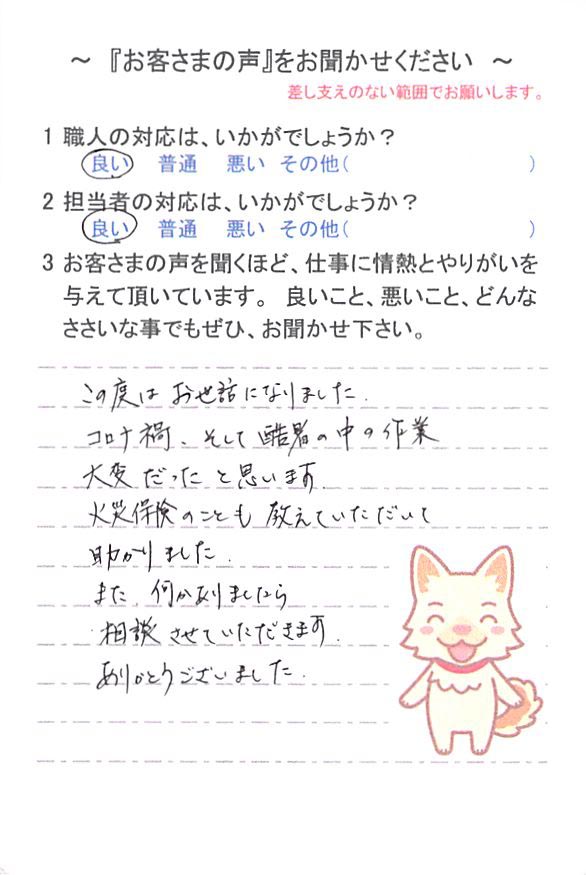 ～ 『お客さまの声』をお聞かせください ～
差し支えのない範囲でお願いします。
1 職人の対応は、いかがでしょうか？
良い 普通 悪い その他( )
2 担当者の対応は、いかがでしょうか？
良い 普通 悪い その他( )
3 お客さまの声を聞くほど、仕事に情熱とやりがいを
与えて頂いています。 良いこと、悪いこと、どんな
ささいな事でもぜひ、お聞かせ下さい。
この度は お世話になりました.
コロナ禍、そして 酷暑の中の作業
大変だったと思います.
火災保険のことも 教えていただいて
助かりました.
また、何かありましたら
相談 させていただきます.
ありがとうございました.